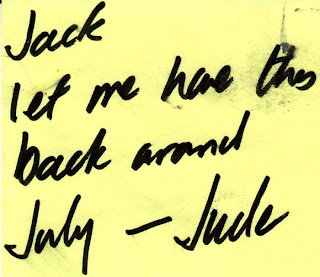 Jack
let me have this
back around
July — Jude